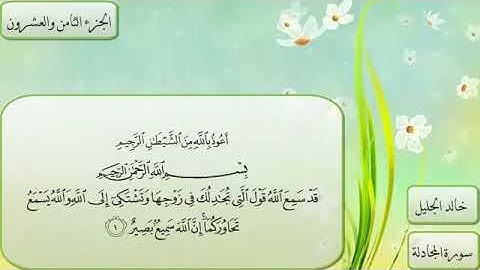 الجزء الثامن والعشرون
أَعُوذُ بِاللَّهِ مِنَ الشَّيْطَٰنِ الرَّجِيمِ
بِسْمِ اللَّهِ الرَّحْمَٰنِ الرَّحِيمِ
قَدْ سَمِعَ اللَّهُ قَوْلَ الَّتِي تُجَٰدِلُكَ فِي زَوْجِهَا وَتَشْتَكِي إِلَى اللَّهِ وَاللَّهُ يَسْمَعُ
تَحَاوُرَكُمَا ۚ إِنَّ اللَّهَ سَمِيعٌ بَصِيرٌ ١
خالد الجليل
سورة المجادلة